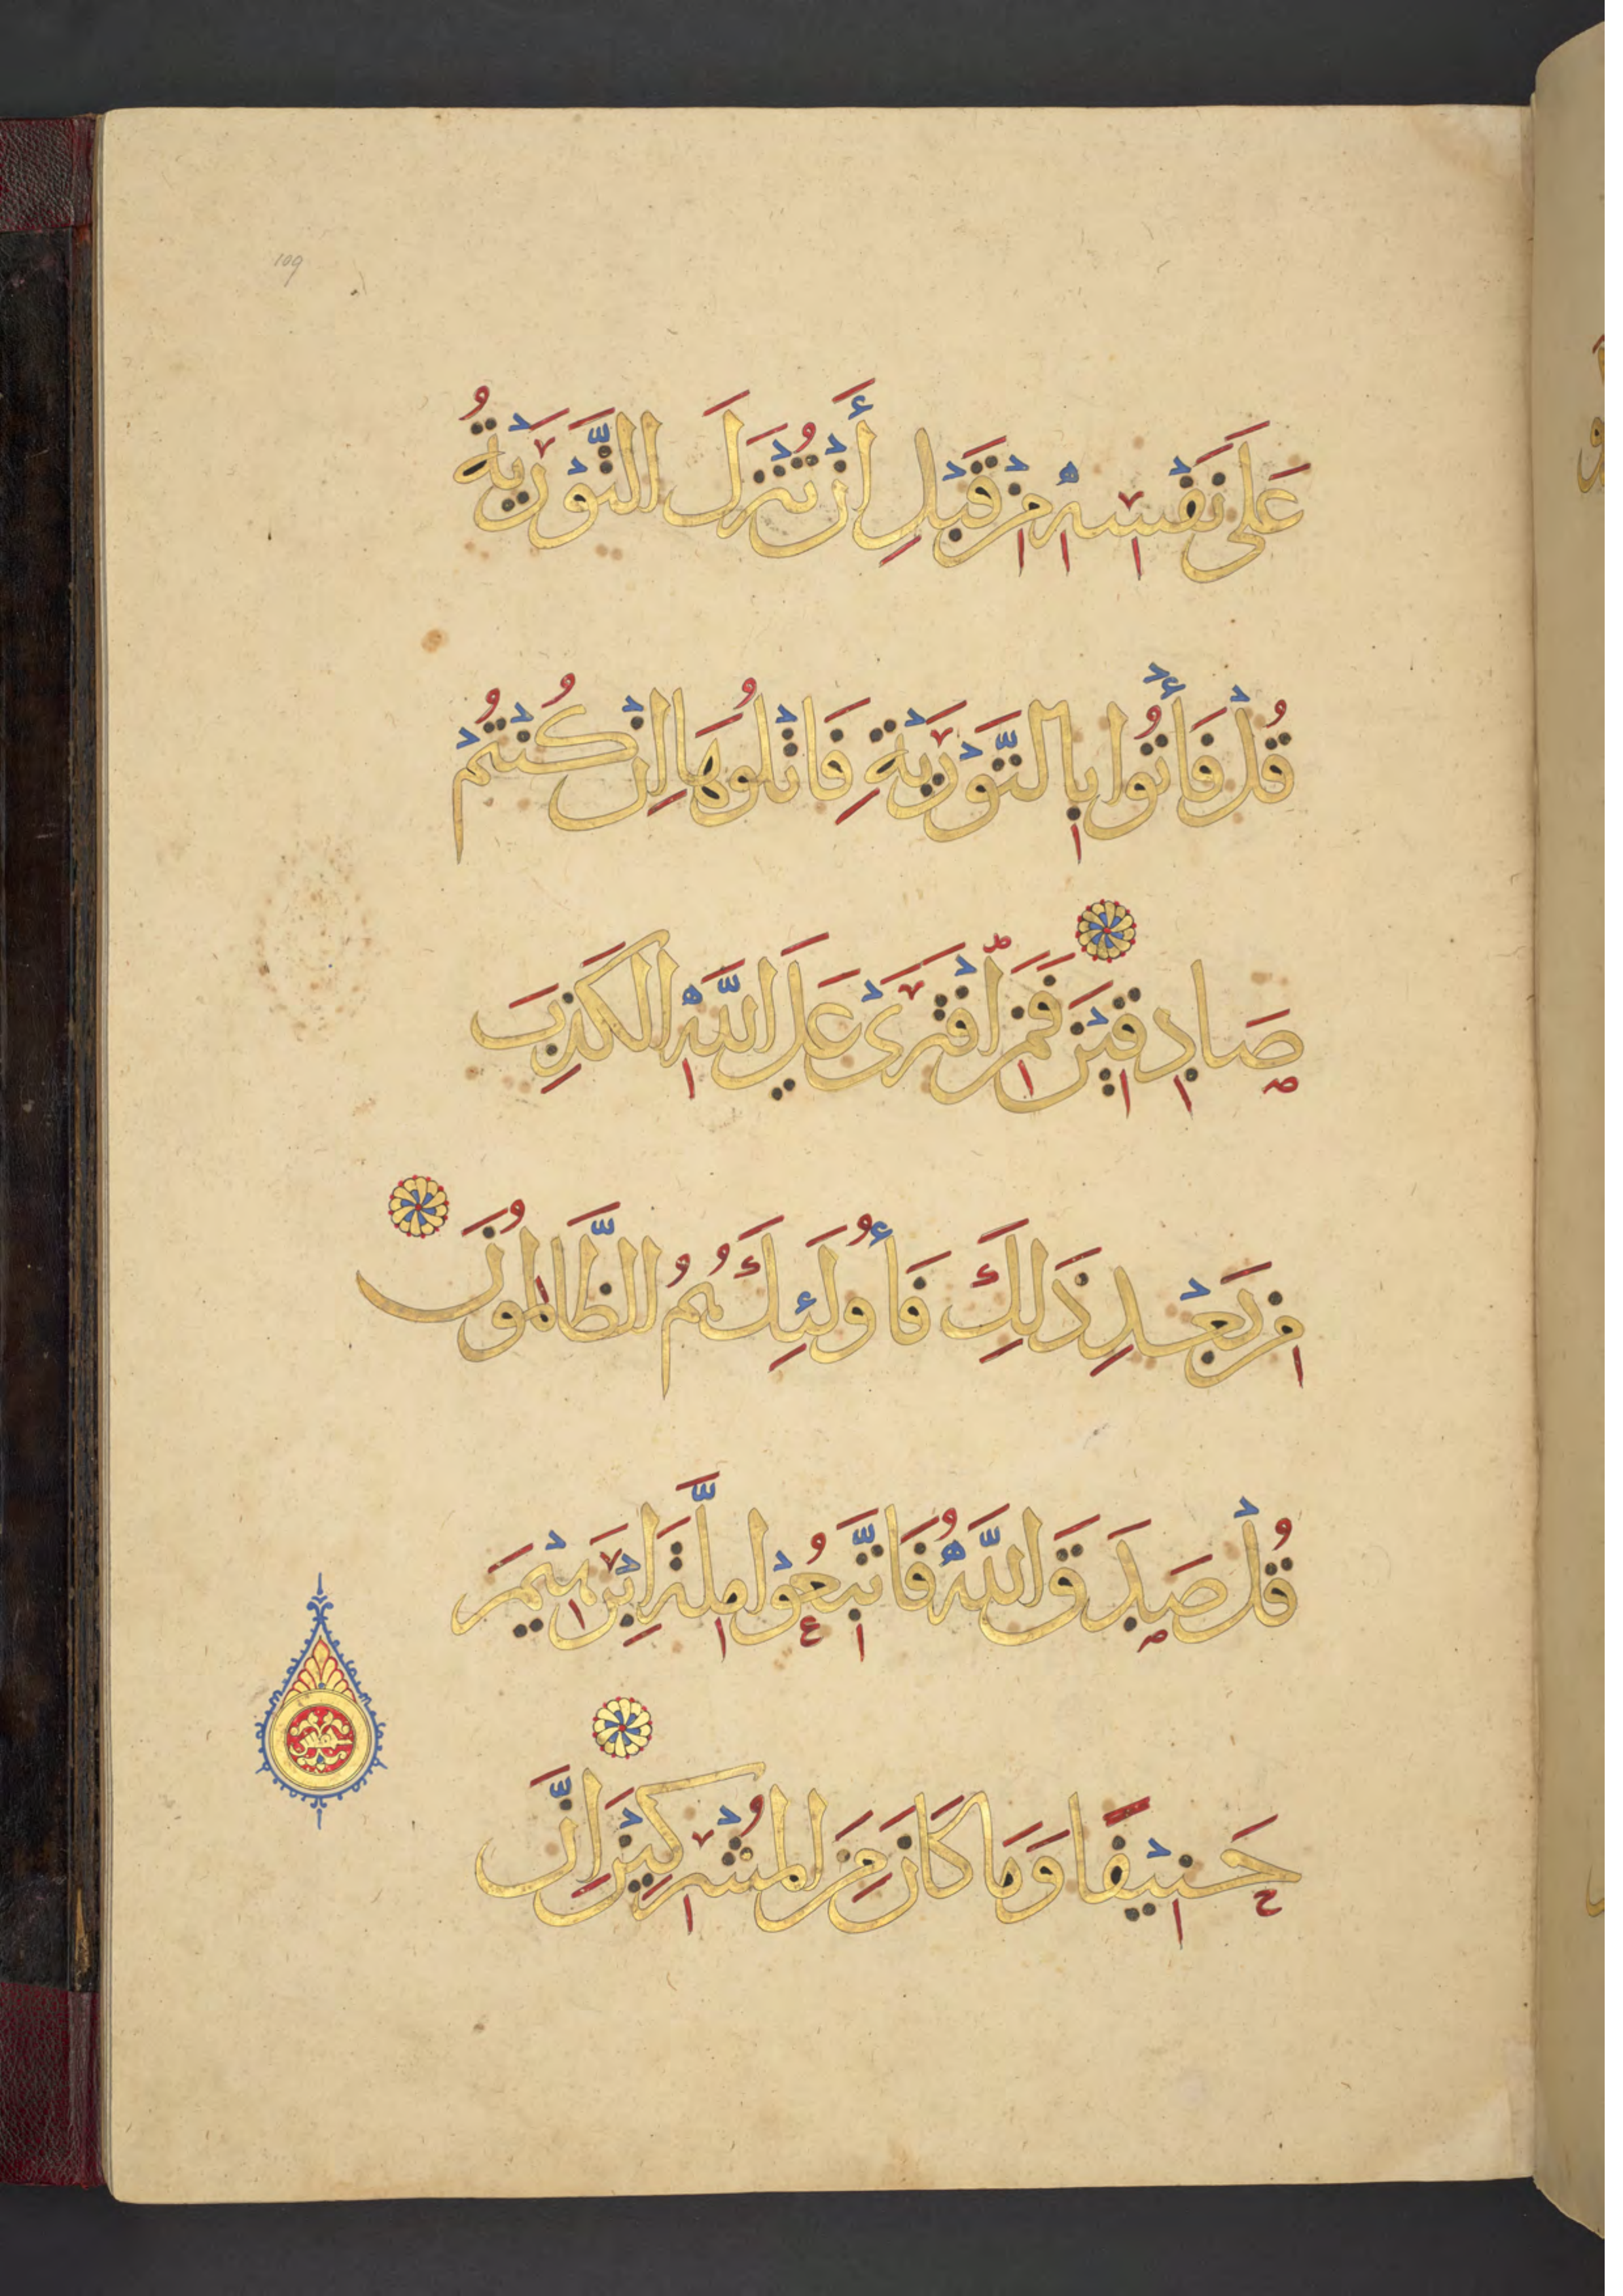 109
عَلَى نَفْسِهِ مِنْ قَبْلِ أَنْ تُنْزَلَ التَّوْرَيٰةُ
قُلْ فَأْتُوا بِالتَّوْرَيٰةِ فَاتْلُوهَا إِنْ كُنْتُمْ
صَادِقِيْنَ فَمَنِ افْتَرَىْ عَلَي اللَّهِ الكَذِبَ
مِنْ بَعْدِ ذَلِكَ فَأُولَئِكَ هُمُ الظَّالِمُونَ
قُلْ صَدَقَ اللَّهُ فَاتَّبِعُوْا مِلَّةَ إِبْرَهِيْمَ
حَنِيْفًا وَمَا كَانَ مِنَ المُشْرِكِيْنَ إِنَّ